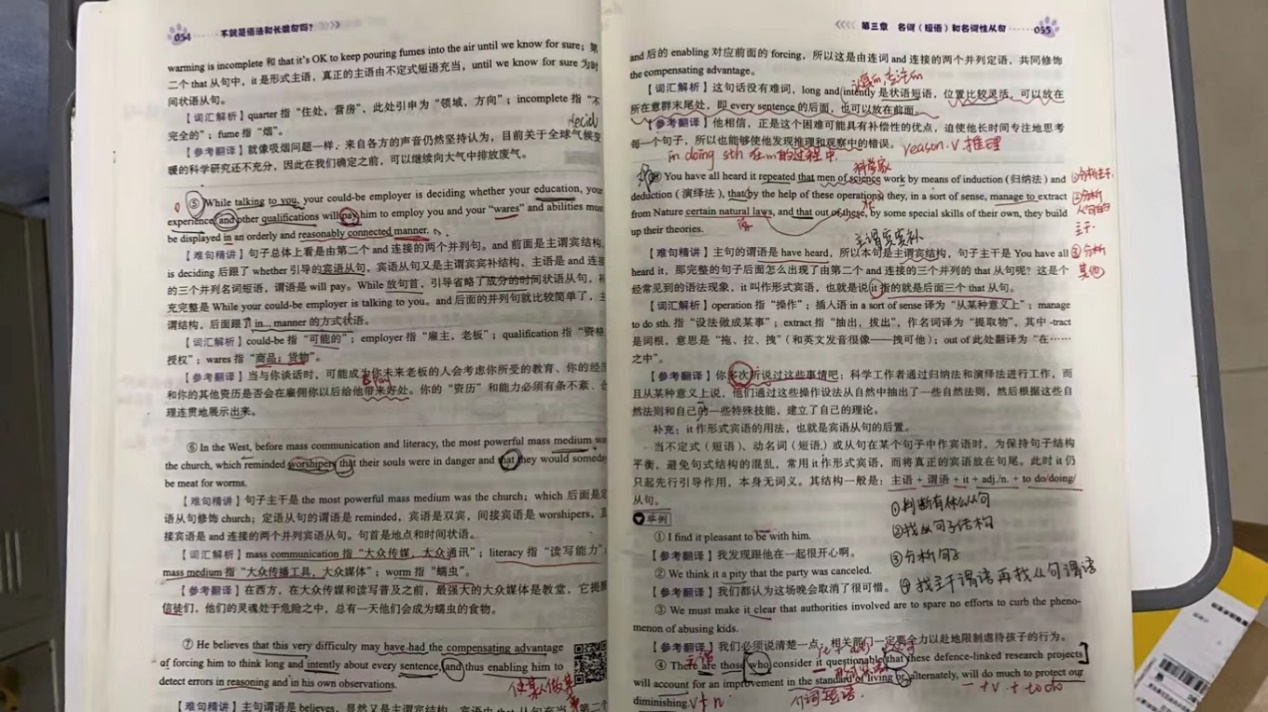 054 不就是语法和长难句吗?
warming is incomplete 和 that it's OK to keep pouring fumes into the air until we know for sure; 第
二个 that 从句中, it 是形式主语, 真正的主语由不定式短语充当, until we know for sure 为时
间状语从句。
【词汇解析】quarter 指“住处, 营房”, 此处引申为“领域, 方向”; incomplete 指“不
完全的”; fume 指“烟”。
【参考翻译】就像吸烟问题一样, 来自各方的声音仍然坚持认为, 目前关于全球气候变
暖的科学研究还不充分, 因此在我们确定之前, 可以继续向大气中排放废气。
⑤ While talking to you, your could-be employer is deciding whether your education, your
experience, and other qualifications will pay him to employ you and your “wares” and abilities must
be displayed in an orderly and reasonably connected manner.
【难句精讲】句子总体上看是由第二个 and 连接的两个并列句。and 前面是主谓宾结构,
is deciding 后跟了 whether 引导的宾语从句, 宾语从句又是主谓宾宾补结构, 主语是 and 连接
的三个并列名词短语, 谓语是 will pay。While 放句首, 引导省略了成分的时间状语从句, 补
充完整是 While your could-be employer is talking to you。and 后面的并列句就比较简单了, 主
谓结构, 后面跟了 in... manner 的方式状语。
【词汇解析】could-be 指“可能的”; employer 指“雇主, 老板”; qualification 指“资格,
授权”; wares 指“商品; 货物”。
【参考翻译】当与你谈话时, 可能成为你未来老板的人会考虑你所受的教育、你的经历
和你的其他资历是否会在雇佣你以后给他带来好处。你的“资历”和能力必须有条不紊、合
理连贯地展示出来。
⑥ In the West, before mass communication and literacy, the most powerful mass medium was
the church, which reminded worshipers that their souls were in danger and that they would someday
be meat for worms.
【难句精讲】句子主干是 the most powerful mass medium was the church; which 后面是定
语从句修饰 church; 定语从句的谓语是 reminded, 宾语是双宾, 间接宾语是 worshipers, 直
接宾语是 and 连接的两个并列宾语从句。句首是地点和时间状语。
【词汇解析】mass communication 指“大众传媒, 大众通讯”; literacy 指“读写能力”;
mass medium 指“大众传播工具, 大众媒体”; worm 指“蠕虫”。
【参考翻译】在西方, 在大众传媒和读写普及之前, 最强大的大众媒体是教堂, 它提醒
信徒们, 他们的灵魂处于危险之中, 总有一天他们会成为蠕虫的食物。
⑦ He believes that this very difficulty may have had the compensating advantage
of forcing him to think long and intently about every sentence, and thus enabling him to
detect errors in reasoning and in his own observations.
第三章 名词(短语)和名词性从句 055
and 后的 enabling 对应前面的 forcing, 所以这是由连词 and 连接的两个并列定语, 共同修饰
the compensating advantage。
【词汇解析】这句话没有难词, long and intently 是状语短语, 位置比较灵活, 可以放在
所在意群末尾处, 即 every sentence 的后面, 也可以放在前面。
【参考翻译】他相信, 正是这个困难可能具有补偿性的优点, 迫使他长时间专注地思考
每一个句子, 所以也能够使他发现推理和观察中的错误。 reason. v 推理
in doing sth 在…的过程中
科学家
⑧ You have all heard it repeated that men of science work by means of induction (归纳法) and
deduction (演绎法), that by the help of these operations, they, in a sort of sense, manage to extract
from Nature certain natural laws, and that out of these, by some special skills of their own, they build
up their theories.
主谓宾宾补
【难句精讲】主句的谓语是 have heard, 所以本句是主谓宾结构, 句子主干是 You have all
heard it, 那完整的句子后面怎么出现了由第二个 and 连接的三个并列的 that 从句呢? 这是个
经常见到的语法现象, it 叫作形式宾语, 也就是说 it 指的就是后面三个 that 从句。
【词汇解析】operation 指“操作”; 插入语 in a sort of sense 译为“从某种意义上”; manage
to do sth. 指“设法做成某事”; extract 指“抽出, 拔出”, 作名词译为“提取物”, 其中 -tract
是词根, 意思是“拖、拉、拽”(和英文发音很像——拽可他); out of 此处翻译为“在……
之中”。
【参考翻译】你多次所说过这些事情吧: 科学工作者通过归纳法和演绎法进行工作, 而
且从某种意义上说, 他们通过这些操作设法从自然中抽出了一些自然法则, 然后根据这些自
然法则和自己的一些特殊技能, 建立了自己的理论。
补充: it 作形式宾语的用法, 也就是宾语从句的后置。
当不定式(短语)、动名词(短语)或从句在某个句子中作宾语时, 为保持句子结构
平衡, 避免句式结构的混乱, 常用 it 作形式宾语, 而将真正的宾语放在句尾。此时 it 仍
只起先行引导作用, 本身无词义。其结构一般是: 主语 + 谓语 + it + adj./n. + to do/doing/
从句。
①判断有什么从句
②找从句子结构
③分析句子
④找主干谓语再找从句谓语
举例
① I find it pleasant to be with him.
【参考翻译】我发现跟他在一起很开心啊。
② We think it a pity that the party was canceled.
【参考翻译】我们都认为这场晚会取消了很可惜。
③ We must make it clear that authorities involved are to spare no efforts to curb the pheno-
menon of abusing kids.
【参考翻译】我们必须说清楚一点, 相关部门一定要全力以赴地限制虐待孩子的行为。
④ There are those who consider it questionable that these defence-linked research projects
will account for an improvement in the standard of living or, alternately, will do much to protect our
diminishing